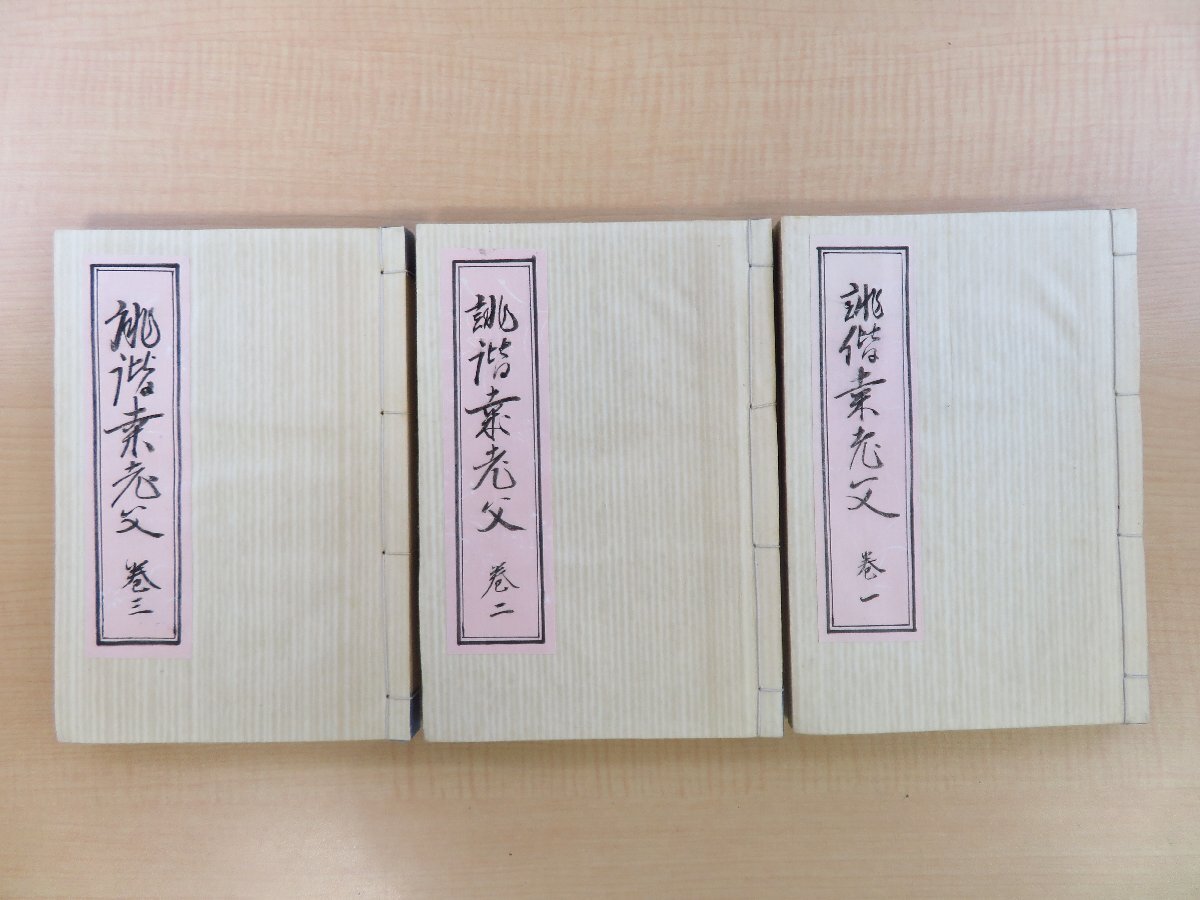 誹偕橐老父
巻一
誹諧橐老父
巻二
誹諧橐老父
巻三